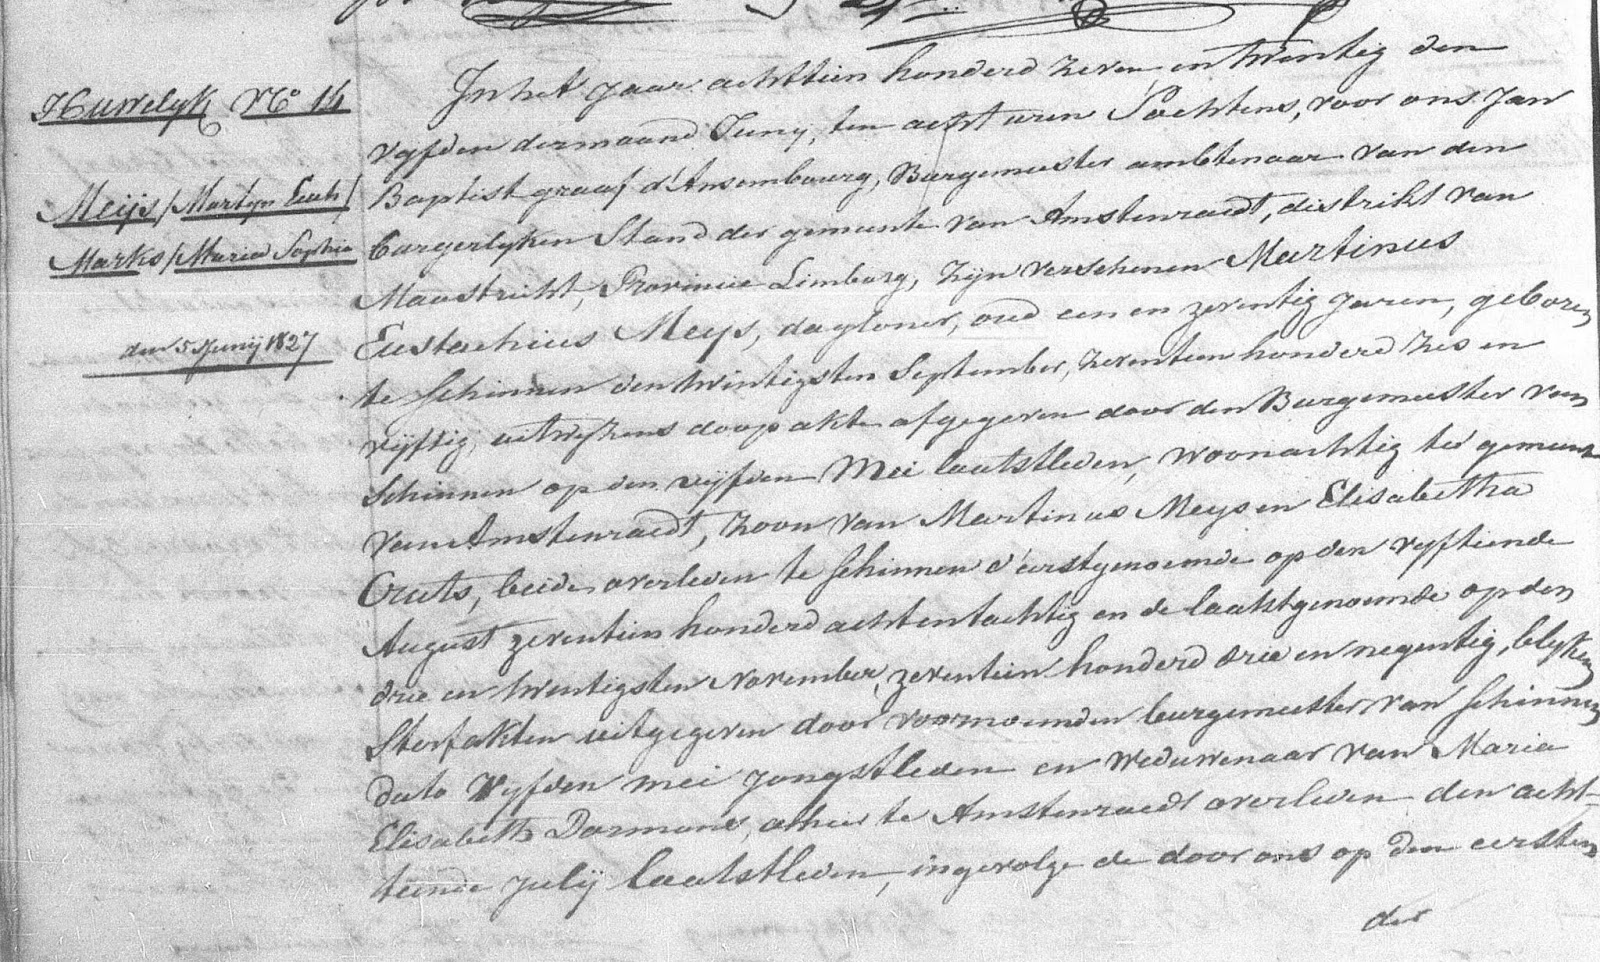 Huwelyk No 14
Meijs / Martyn Eust /
Marks / Maria Sophia
den 5 Junij 1827
In het Jaar achttien honderd zeven en twentig den
vyfden der maand Juny, ten acht uren S'ochtens, voor ons Jan
Baptist graaf d'Ansembourg, Burgemeester ambtenaar van den
burgerlyken Stand der gemeente van Amstenraedt, distrikt van
Maastricht, Provincie Limburg, zijn verschenen Martinus
Eustachius Meijs, dagloner, oud een en zeventig Jaren, geboren
te Schinnen den twintigsten September, zeventien honderd zes en
vijftig, uitwyzens doop akte afgegeven door den Burgemeester van
Schinnen op den vyfden Mei laatstleden, woonachtig ter gemeente
van Amstenraedt, zoon van Martinus Meys en Elisabetha
Cruts, beide overleden te Schinnen d'eerstgenoemde op den vyftiende
August zeventien honderd acht en tachtig en de laatstgenoemde op den
drie en twentigsten November, zeventien honderd drie en negentig, blykens
Sterfakten uitgegeven door voornoemden burgemeester van Schinnen
dato Vyfden mei jongstleden en weduwenaar van Maria
Elisabeth Dormans, alhier te Amstenraedt overleden den acht-
tiende July laatstleden, ingevolge de door ons op den eersten
der